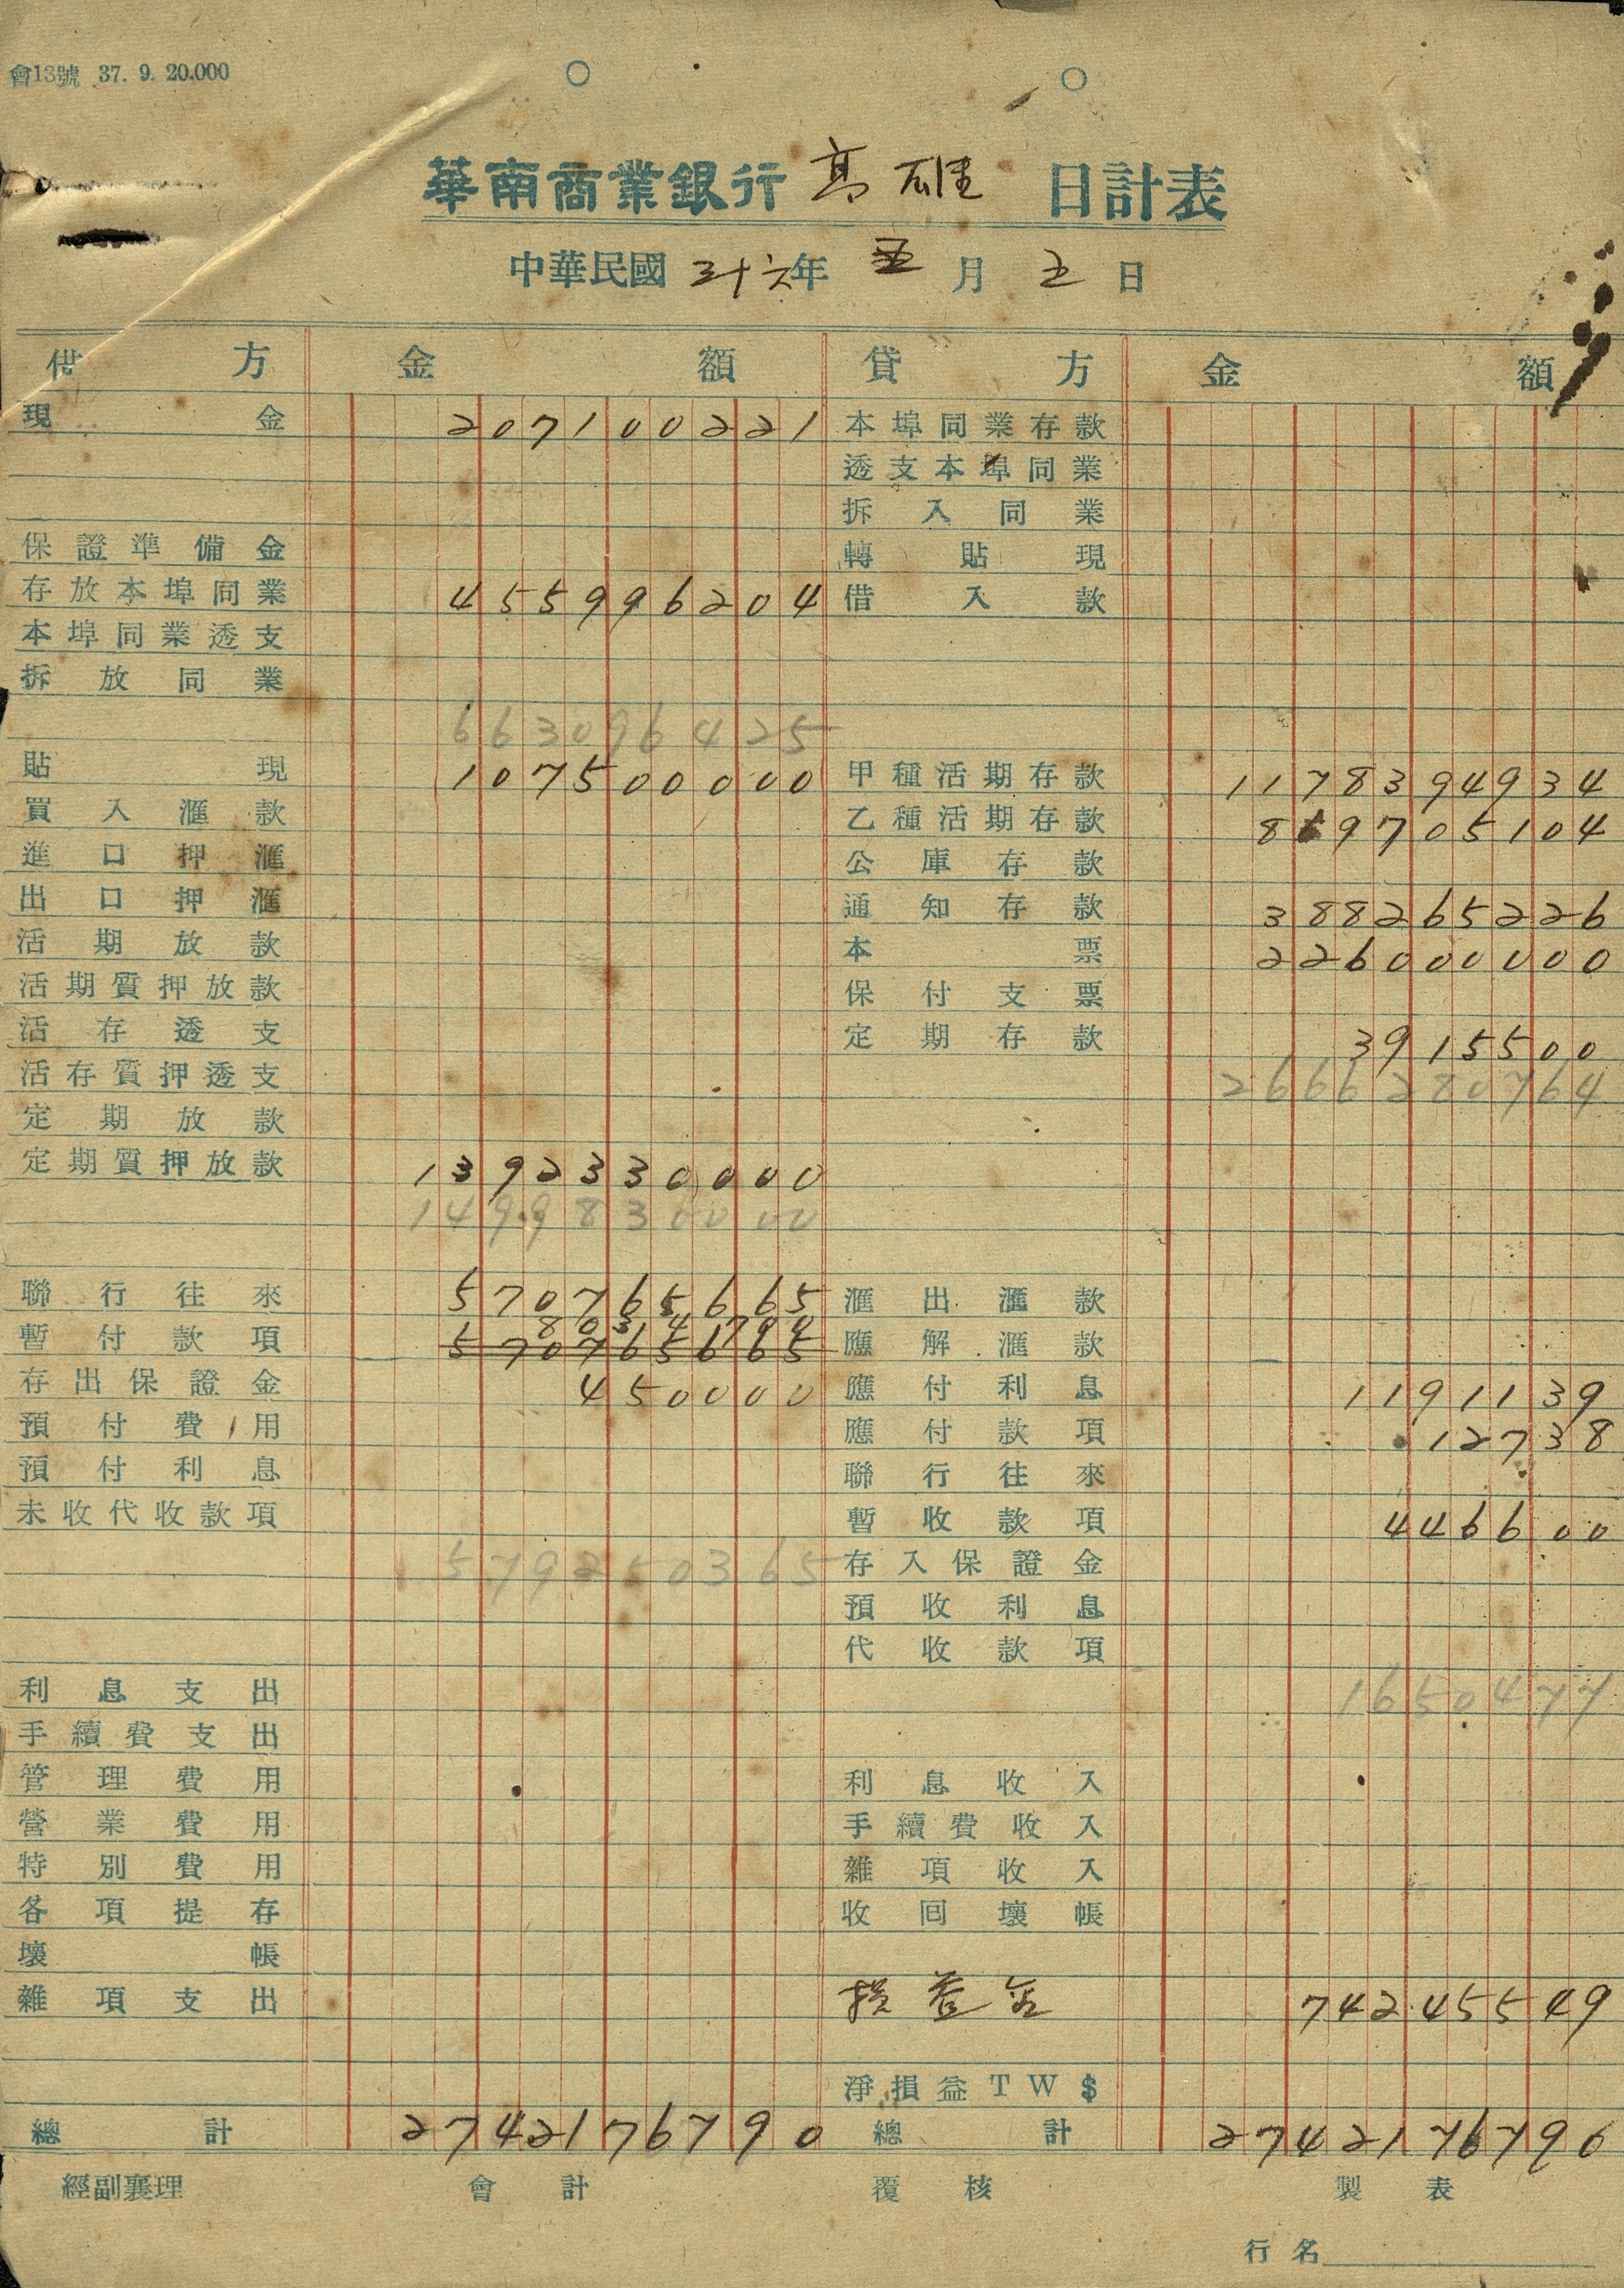 會13號 37. 9. 20.000
華南商業銀行 高雄 日計表
中華民國 三十六年 五月 五日
借方 金額 貸方 金額
現金 207100221 本埠同業存款
透支本埠同業
拆入同業
保證準備金 轉貼現
存放本埠同業 455996204 借入款
本埠同業透支
拆放同業
663096425
貼現 107500000 甲種活期存款 1178394934
買入滙款 乙種活期存款 869705104
進口押滙 公庫存款
出口押滙 通知存款 388265226
活期放款 本票 226000000
活期質押放款 保付支票
活存透支 定期存款 3915500
活存質押透支 2666280764
定期放款
定期質押放款 1392330000
1499830000
聯行往來 570765665 滙出滙款
8034700
暫付款項 570765665 應解滙款
存出保證金 450000 應付利息 1191139
預付費用 應付款項 12738
預付利息 聯行往來
未收代收款項 暫收款項 446600
579250365 存入保證金
預收利息
代收款項
利息支出 1650477
手續費支出
管理費用 利息收入
營業費用 手續費收入
特別費用 雜項收入
各項提存 收回壞帳
壞帳
雜項支出 損益金 74245549
淨損益TW$
總計 2742176790 總計 2742176790
經副襄理 會計 覆核 製表
行名